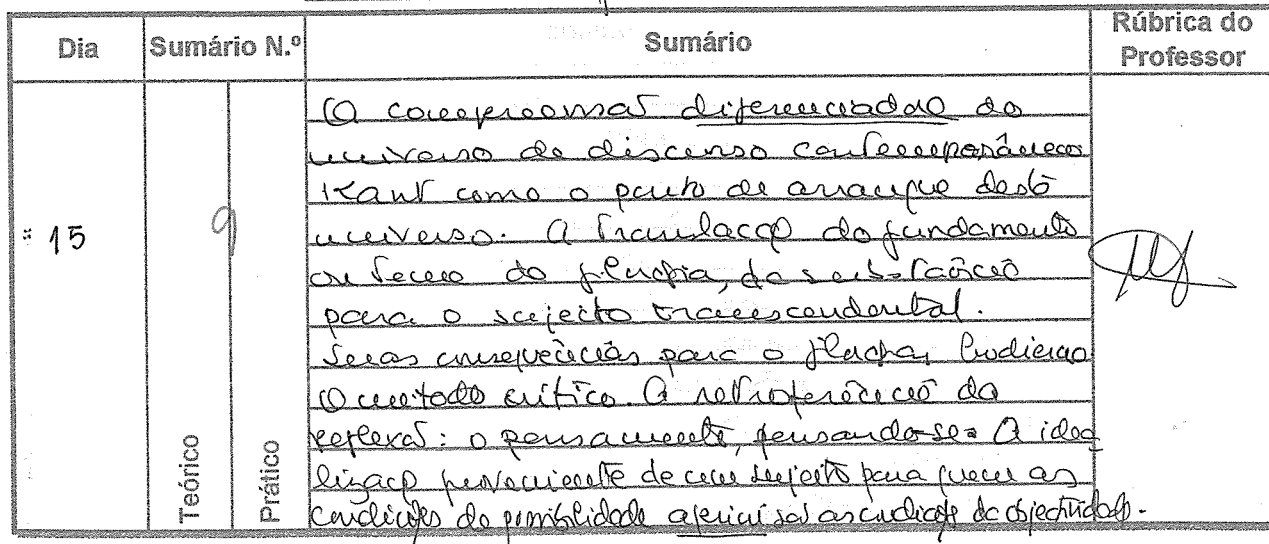 Dia Sumário N.º Sumário Rúbrica do Professor
A compreensão diferenciada do
universo de discurso contemporâneo
Kant como o ponto de arranque deste
15 9 universo. A translação do fundamento
ontem da filosofia, da substância
para o sujeito transcendental.
Suas consequências para a filosofia
O método crítico. A retroferência da
reflexão: o pensamento, pensando-se. A idea
lização proveniente de um sujeito para quem as
condições de possibilidade a priori são as condições da objectividade.
Teórico Prático